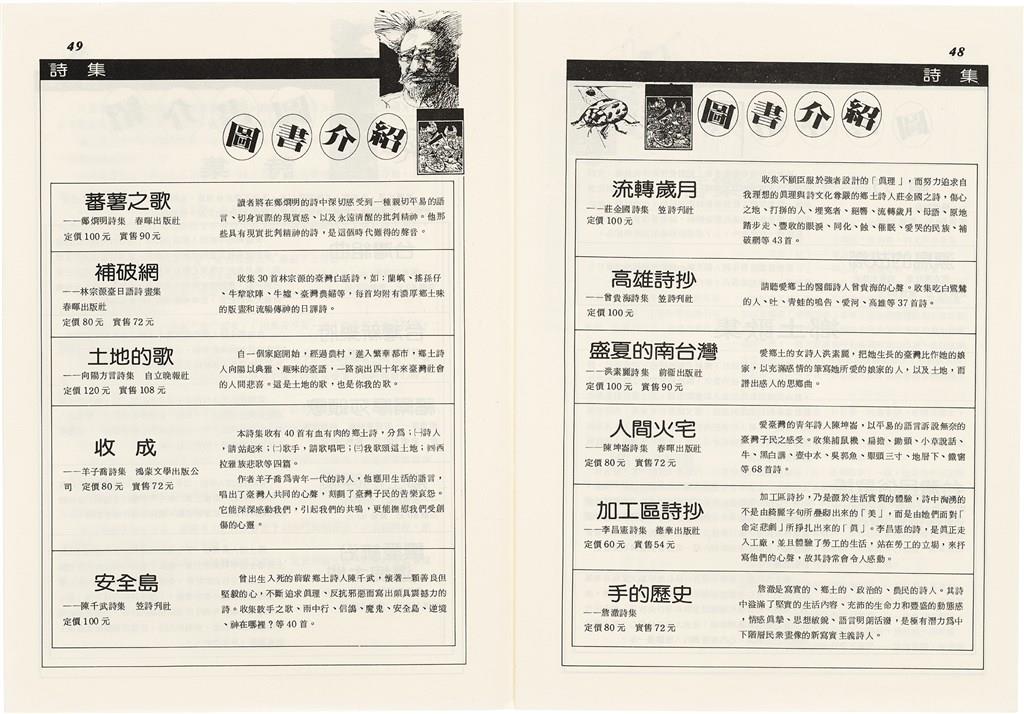 49
詩集
圖書介紹
蕃薯之歌
——鄭烱明詩集　春暉出版社
定價100元　實售90元
讀者將在鄭烱明的詩中深切感受到一種親切平易的語
言、切身實際的現實感、以及永遠清醒的批判精神。他那
些具有現實批判精神的詩，是這個時代難得的聲音。
補破網
——林宗源臺日語詩畫集
春暉出版社
定價80元　實售72元
收集30首林宗源的臺灣白話詩，如：蘭嶼、搖孫仔
、牛犂歌陣、牛墟、臺灣農婦等，每首均附有濃厚鄉土味
的版畫和流暢傳神的日譯詩。
土地的歌
——向陽方言詩集　自立晚報社
定價120元　實售108元
自一個家庭開始，經過農村，進入繁華都市，鄉土詩
人向陽以典雅、趣味的臺語，一路演出四十年來臺灣社會
的人間悲喜。這是土地的歌，也是你我的歌。
收成
——羊子喬詩集　鴻蒙文學出版公
司　定價80元　實售72元
本詩集收有40首有血有肉的鄉土詩，分爲；㈠詩人
，請站起來；㈡歌手，請歌唱吧；㈢我歌頌這土地；㈣西
拉雅族悲歌等四篇。
作者羊子喬爲青年一代的詩人，他應用生活的語言，
唱出了臺灣人共同的心聲，刻劃了臺灣子民的苦樂哀怨。
它能深深感動我們，引起我們的共鳴，更能撫慰我們受創
傷的心靈。
安全島
——陳千武詩集　笠詩刋社
定價100元
曾出生入死的前輩鄉土詩人陳千武，懷著一顆善良但
堅毅的心，不斷追求眞理、反抗邪惡而寫出頗具震撼力的
詩。收集鼓手之歌、雨中行、信鴿、魔鬼、安全島、逆境
、神在哪裡？等40首。
48
詩集
圖書介紹
流轉歲月
——莊金國詩集　笠詩刋社
定價100元
收集不願臣服於強者設計的「眞理」，而努力追求自
我理想的眞理與詩文化尊嚴的鄉土詩人莊金國之詩，傷心
之地、打拼的人、埋冤者、絕響、流轉歲月、母語、原地
踏步走、豐收的眼淚、同化、蝕、催眠、愛哭的民族、補
破網等43首。
高雄詩抄
——曾貴海詩集　笠詩刋社
定價100元
請聽愛鄉土的醫師詩人曾貴海的心聲。收集吃白鷺鷥
的人、吐、青蛙的鳴告、愛河、高雄等37首詩。
盛夏的南台灣
——洪素麗詩集　前衞出版社
定價100元　實售90元
愛鄉土的女詩人洪素麗，把她生長的臺灣比作她的娘
家，以充滿感情的筆寫她所愛的娘家的人，以及土地，而
譜出感人的思鄉曲。
人間火宅
——陳坤崙詩集　春暉出版社
定價80元　實售72元
愛臺灣的青年詩人陳坤崙，以平易的語言訴說無奈的
臺灣子民之感受。收集捕鼠機、扁擔、鋤頭、小草說話、
牛、黑白講、壺中水、吳郭魚、眼頭三寸、地層下、鐵窗
等68首詩。
加工區詩抄
——李昌憲詩集　德華出版社
定價60元　實售54元
加工區詩抄，乃是源於生活實質的體驗，詩中洶湧的
不是由綺麗字句所疊砌出來的「美」，而是由她們面對「
命定悲劇」所掙扎出來的「眞」。李昌憲的詩，是眞正走
入工廠，並且體驗了勞工的生活，站在勞工的立場，來抒
寫他們的心聲，故其詩常會令人感動。
手的歷史
——詹澈詩集
定價80元　實售72元
詹澈是寫實的、鄉土的、政治的、農民的詩人。其詩
中溢滿了堅實的生活內容、充沛的生命力和豐盛的動態感
，情感眞摯、思想敏銳、語言明朗活潑，是極有潛力爲中
下階層民衆畫像的新寫實主義詩人。